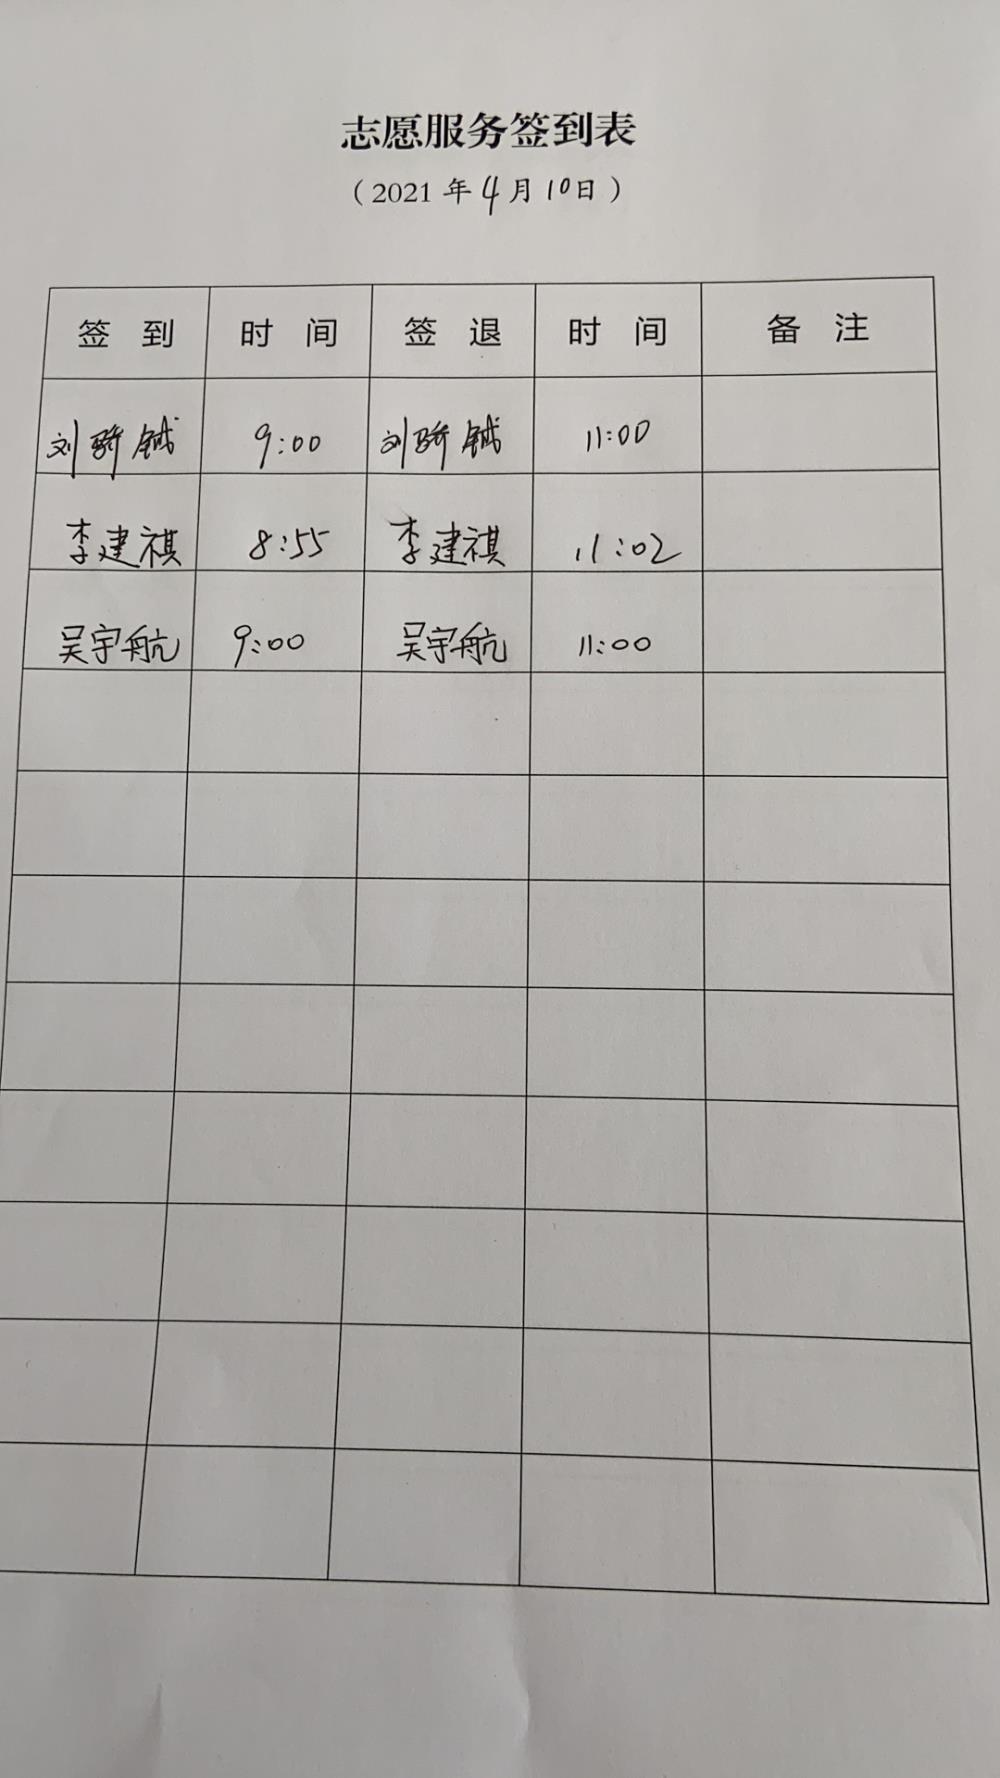 志愿服务签到表
（2021年4月10日）
签到 时间 签退 时间 备注
刘骑铖 9:00 刘骑铖 11:00
李建祺 8:55 李建祺 11:02
吴宇航 9:00 吴宇航 11:00